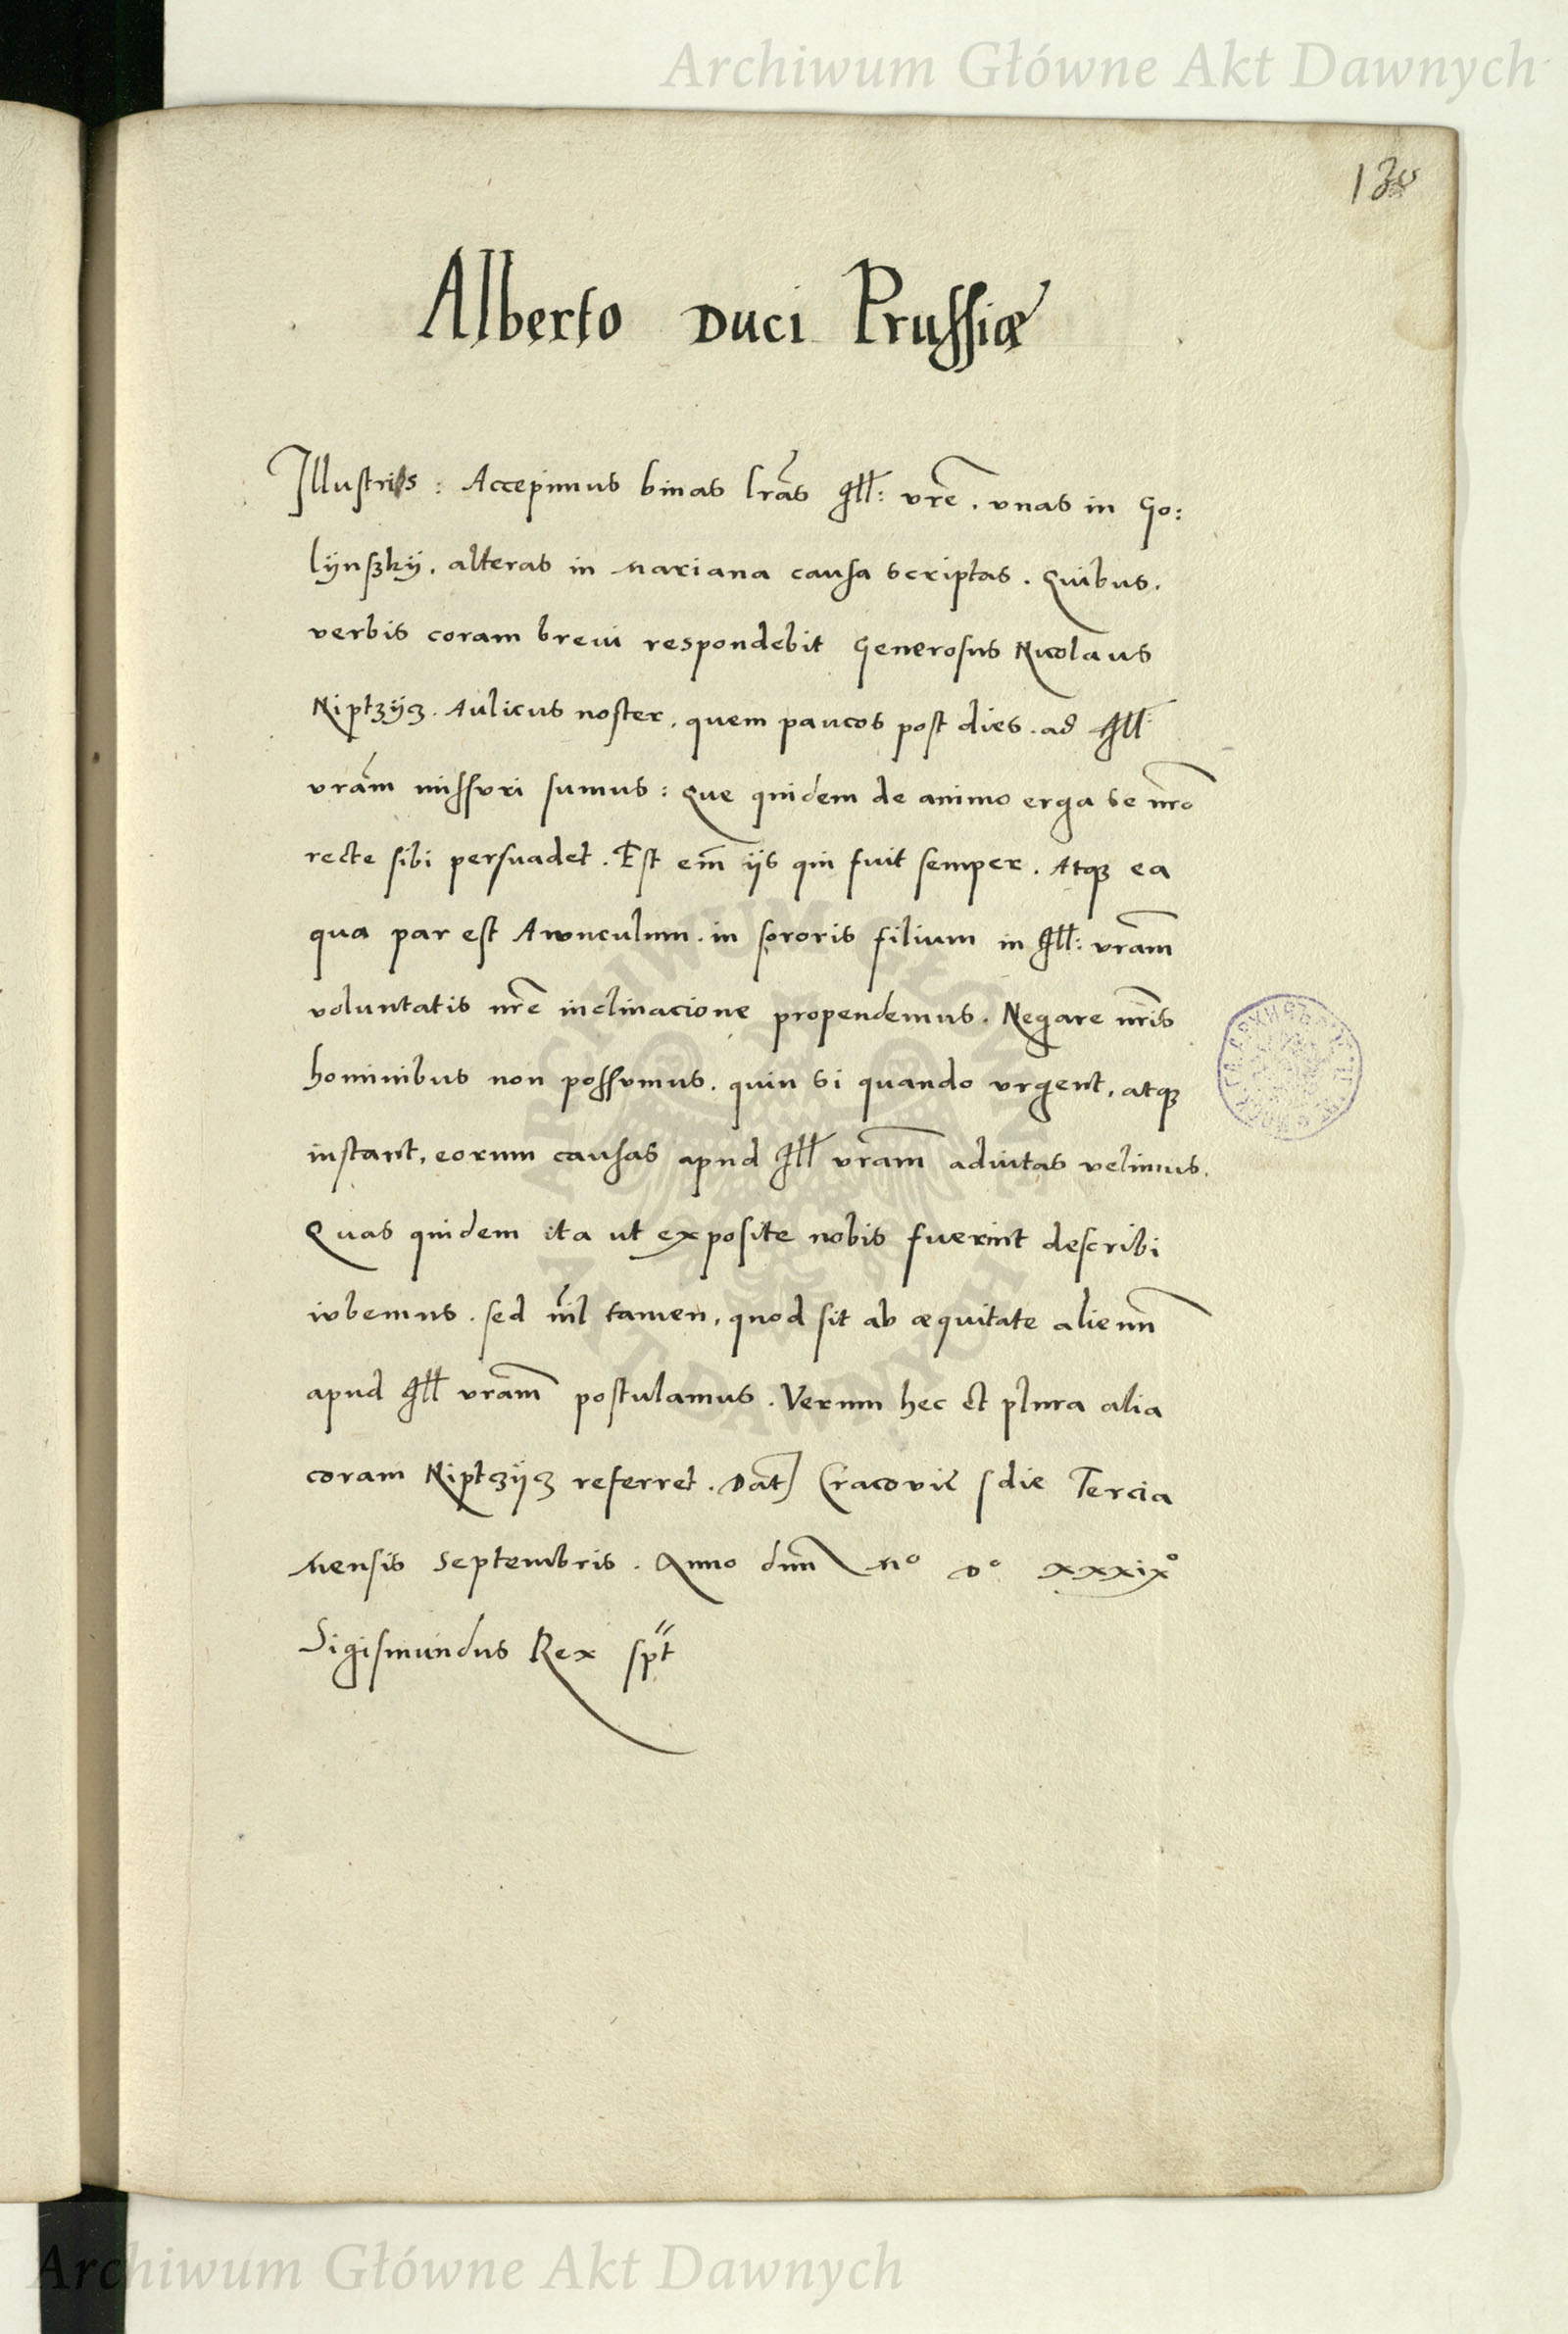 Archiwum Główne Akt Dawnych
Alberto Duci Prussiæ
Illustris : Accepimus binas lrãs Ill: vrẽ . vnas in Go:
lÿnszkÿ . alteras in Mariana causa scriptas . Quibus .
verbis coram brevi respondebit Generosus Nicolaus
Niptzÿcz . Aulicus noster . quem paucos post dies . ad Ill:
vrãm missuri sumus : Que quidem de animo erga se nrõ
recte sibi persuadet . Est em̃ ijs qui fuit semper . Atqꝫ ea
qua par est Awnculum . in sororis filium in Ill: vrãm
voluntatis nrẽ inclinacione propendemus . Negare nrĩs
hominibus non possumus . quin si quando vrgent , atqꝫ
instant , eorum causas apud Ill vrãm adiutas velimus .
Quas quidem ita ut exposite nobis fuerint describi
iubemus . sed nĩl tamen , quod sit ab æquitate alienũ
apud Ill vrãm postulamus . Verum hec et plura alia
coram Niptzÿcz referret . Dat Cracovie die Tercia
Mensis Septembris . Anno dnĩ Mº Dº xxxixº
Sigismundus Rex spt
ARCHIWUM GŁÓWNE
AKT DAWNYCH
Archiwum Główne Akt Dawnych